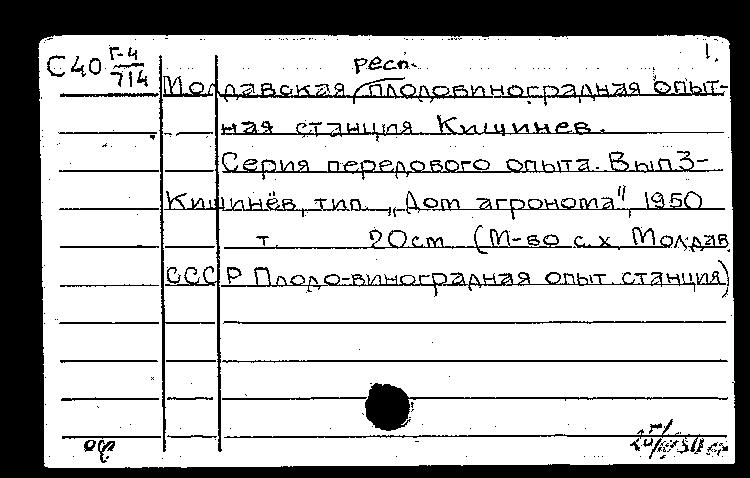 1.
С40 Г-4/714
респ.
Молдавская плодовиноградная опыт-
ная станция. Кишинев.
Серия передового опыта. Вып 3-
Кишинёв, тип. „Дом агронома", 1950
т. 20см. (М-во с.х. Молдав.
СССР Плодо-виноградная опыт. станция)